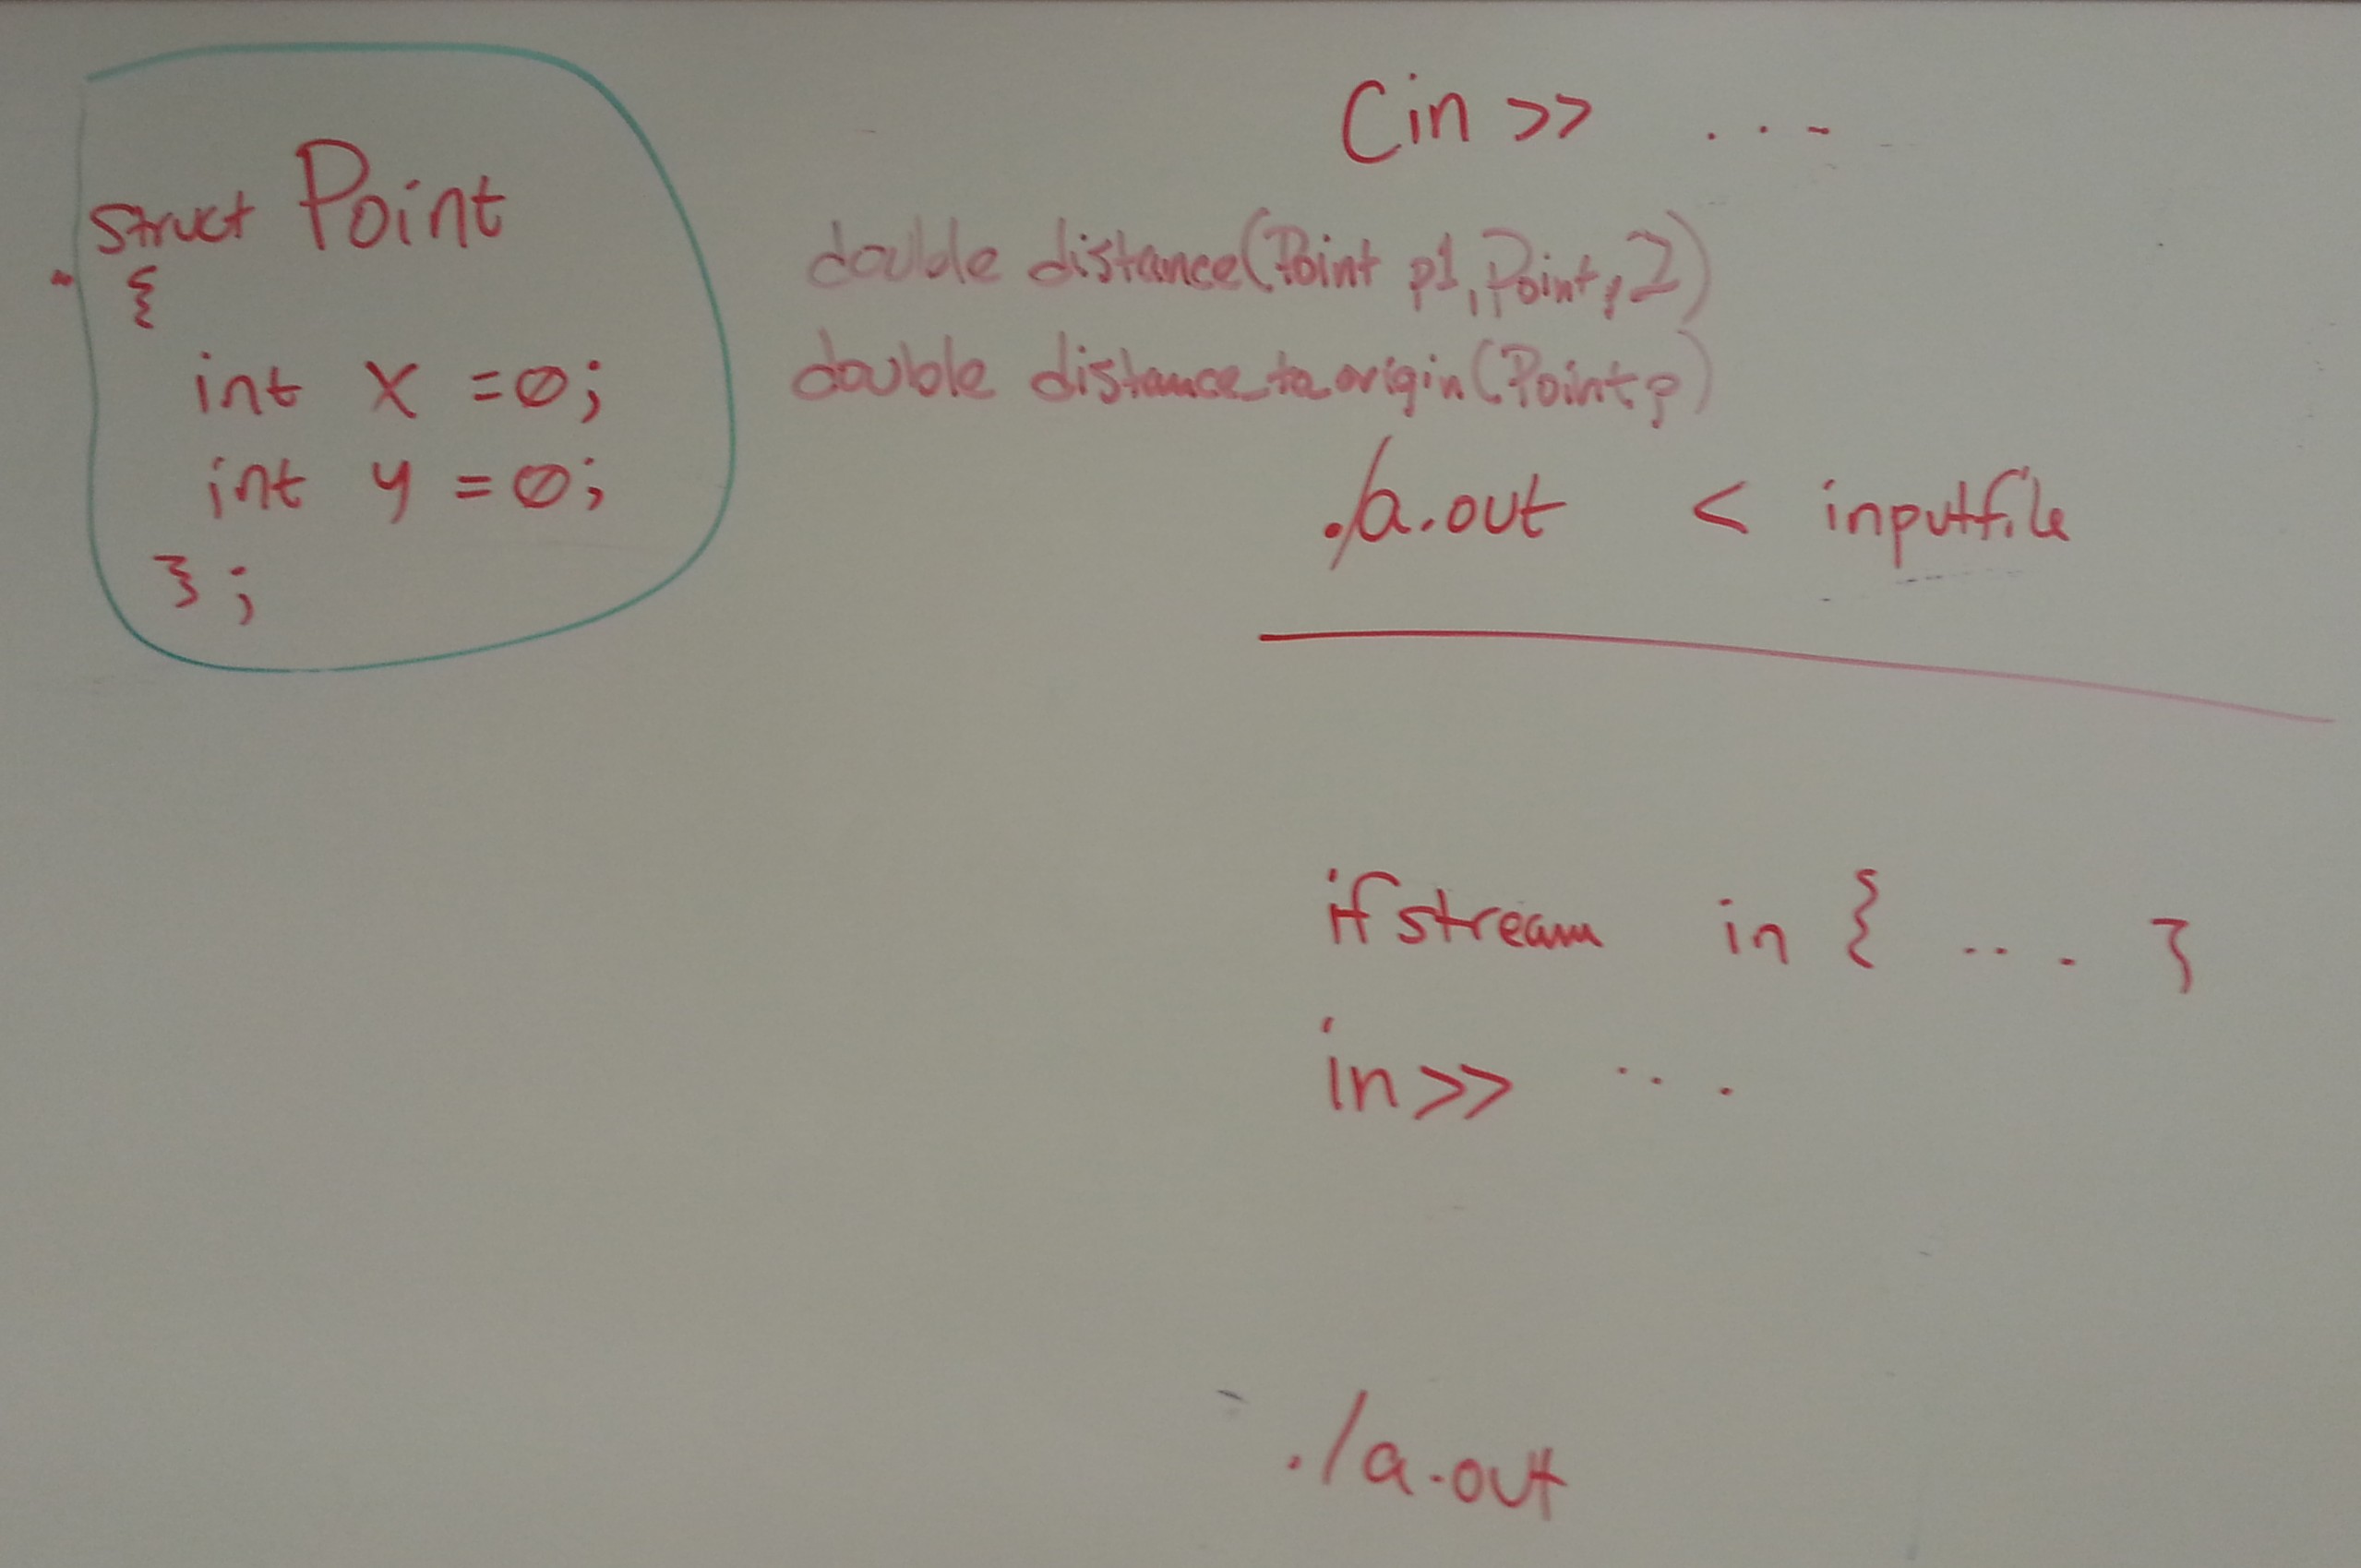 struct Point
{
int x =0;
int y =0;
};
Cin >> ...
double distance(Point p1, Point p2)
double distance_to_origin(Point p)
./a.out < inputfile
ifstream in { .... }
in>> ...
./a.out